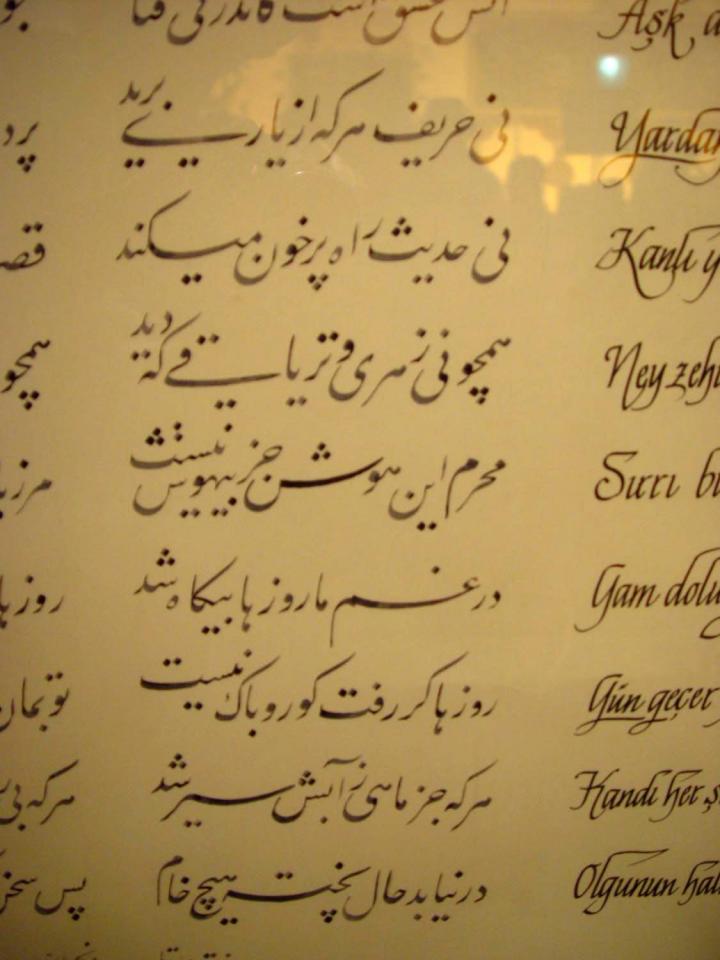 آتش عشق است کاندر نی فتا
نی حریف هرکه از یاری برید
نی حدیث راه پرخون میکند
همچو نی زهری و تریاقی که دید
محرم این هوش جز بیهوش نیست
در غم ما روزها بیکاه شد
روزها کر رفت کو رو باک نیست
هرکه جز ماهی ز آبش سیر شد
درنیابد حال پخته هیچ خام
پرد
قصـ
همچو
مر زبا
روزها
تو بمان
هرکه بی
پس سخن
Aşk a
Yardan
Kanlı y
Ney zehi
Sırrı bi
Gam dolu
Gün geçer
Kandı her ş
Olgunun hal